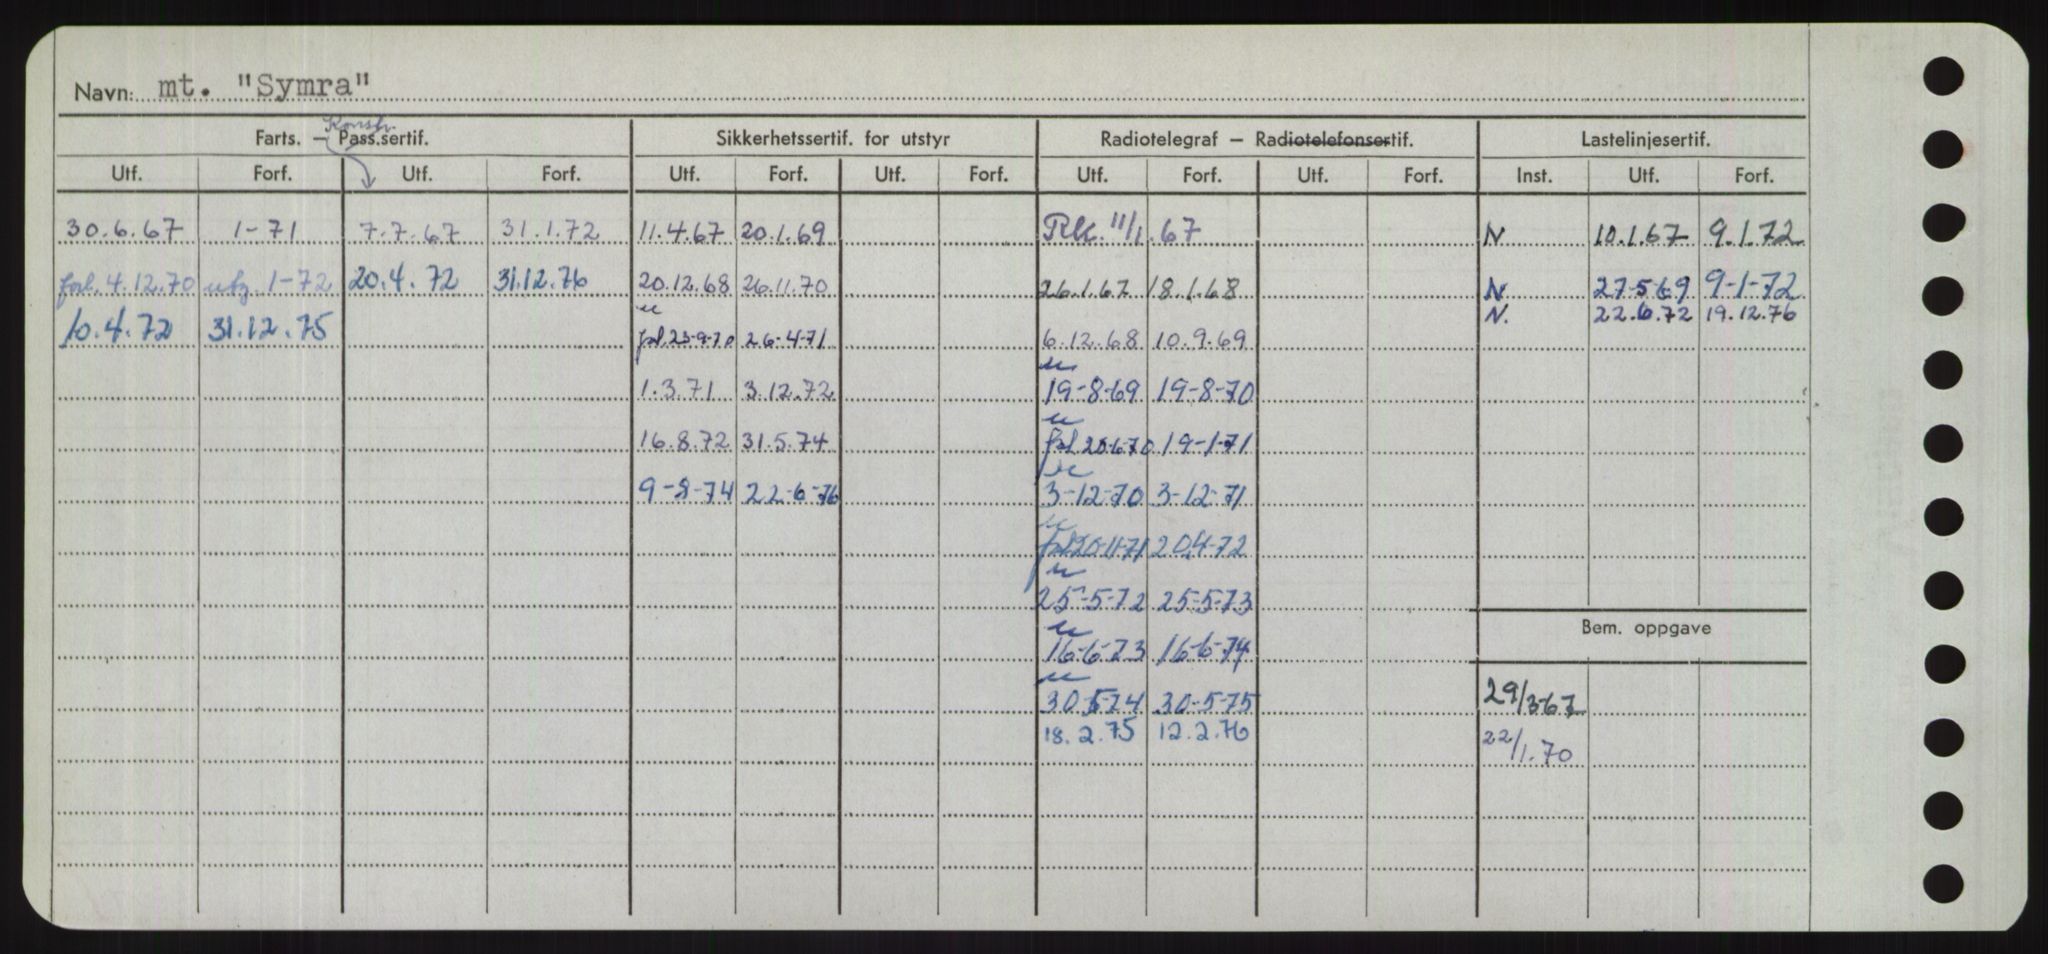 Navn: mt. "Symra"
Konstr.
Farts. — Pass.sertif. Sikkerhetssertif. for utstyr Radiotelegraf — Radiotelefonsertif. Lastelinjesertif.
Utf. Forf. Utf. Forf. Utf. Forf. Utf. Forf. Utf. Forf. Utf. Forf. Inst. Utf. Forf.
30.6.67 1-71 7.7.67 31.1.72 11.4.67 20.1.69 Rk. 11/1.67 N 10.1.67 9.1.72
forl. 4.12.70 utg. 1-72 20.4.72 31.12.76 20.12.68 26.11.70 26.1.67 18.1.68 N 27-5-69 9-1-72
N. 22.6.72 19.12.76
10.4.72 31.12.75 forl. 23-9-70 26-4-71 6.12.68 10.9.69
1.3.71 3.12.72 19-8-69 19-8-70
16.8.72 31.5.74 forl 20-6-70 19-1-71
9-8-74 22-6-76 3-12-70 3-12-71
forl 20-11-71 20.4-72
25-5-72 25-5-73
Bem. oppgave
16-6-73 16-6-74
30-5-74 30-5-75 29/3-67
18.2.75 12.2.76 22/1.70